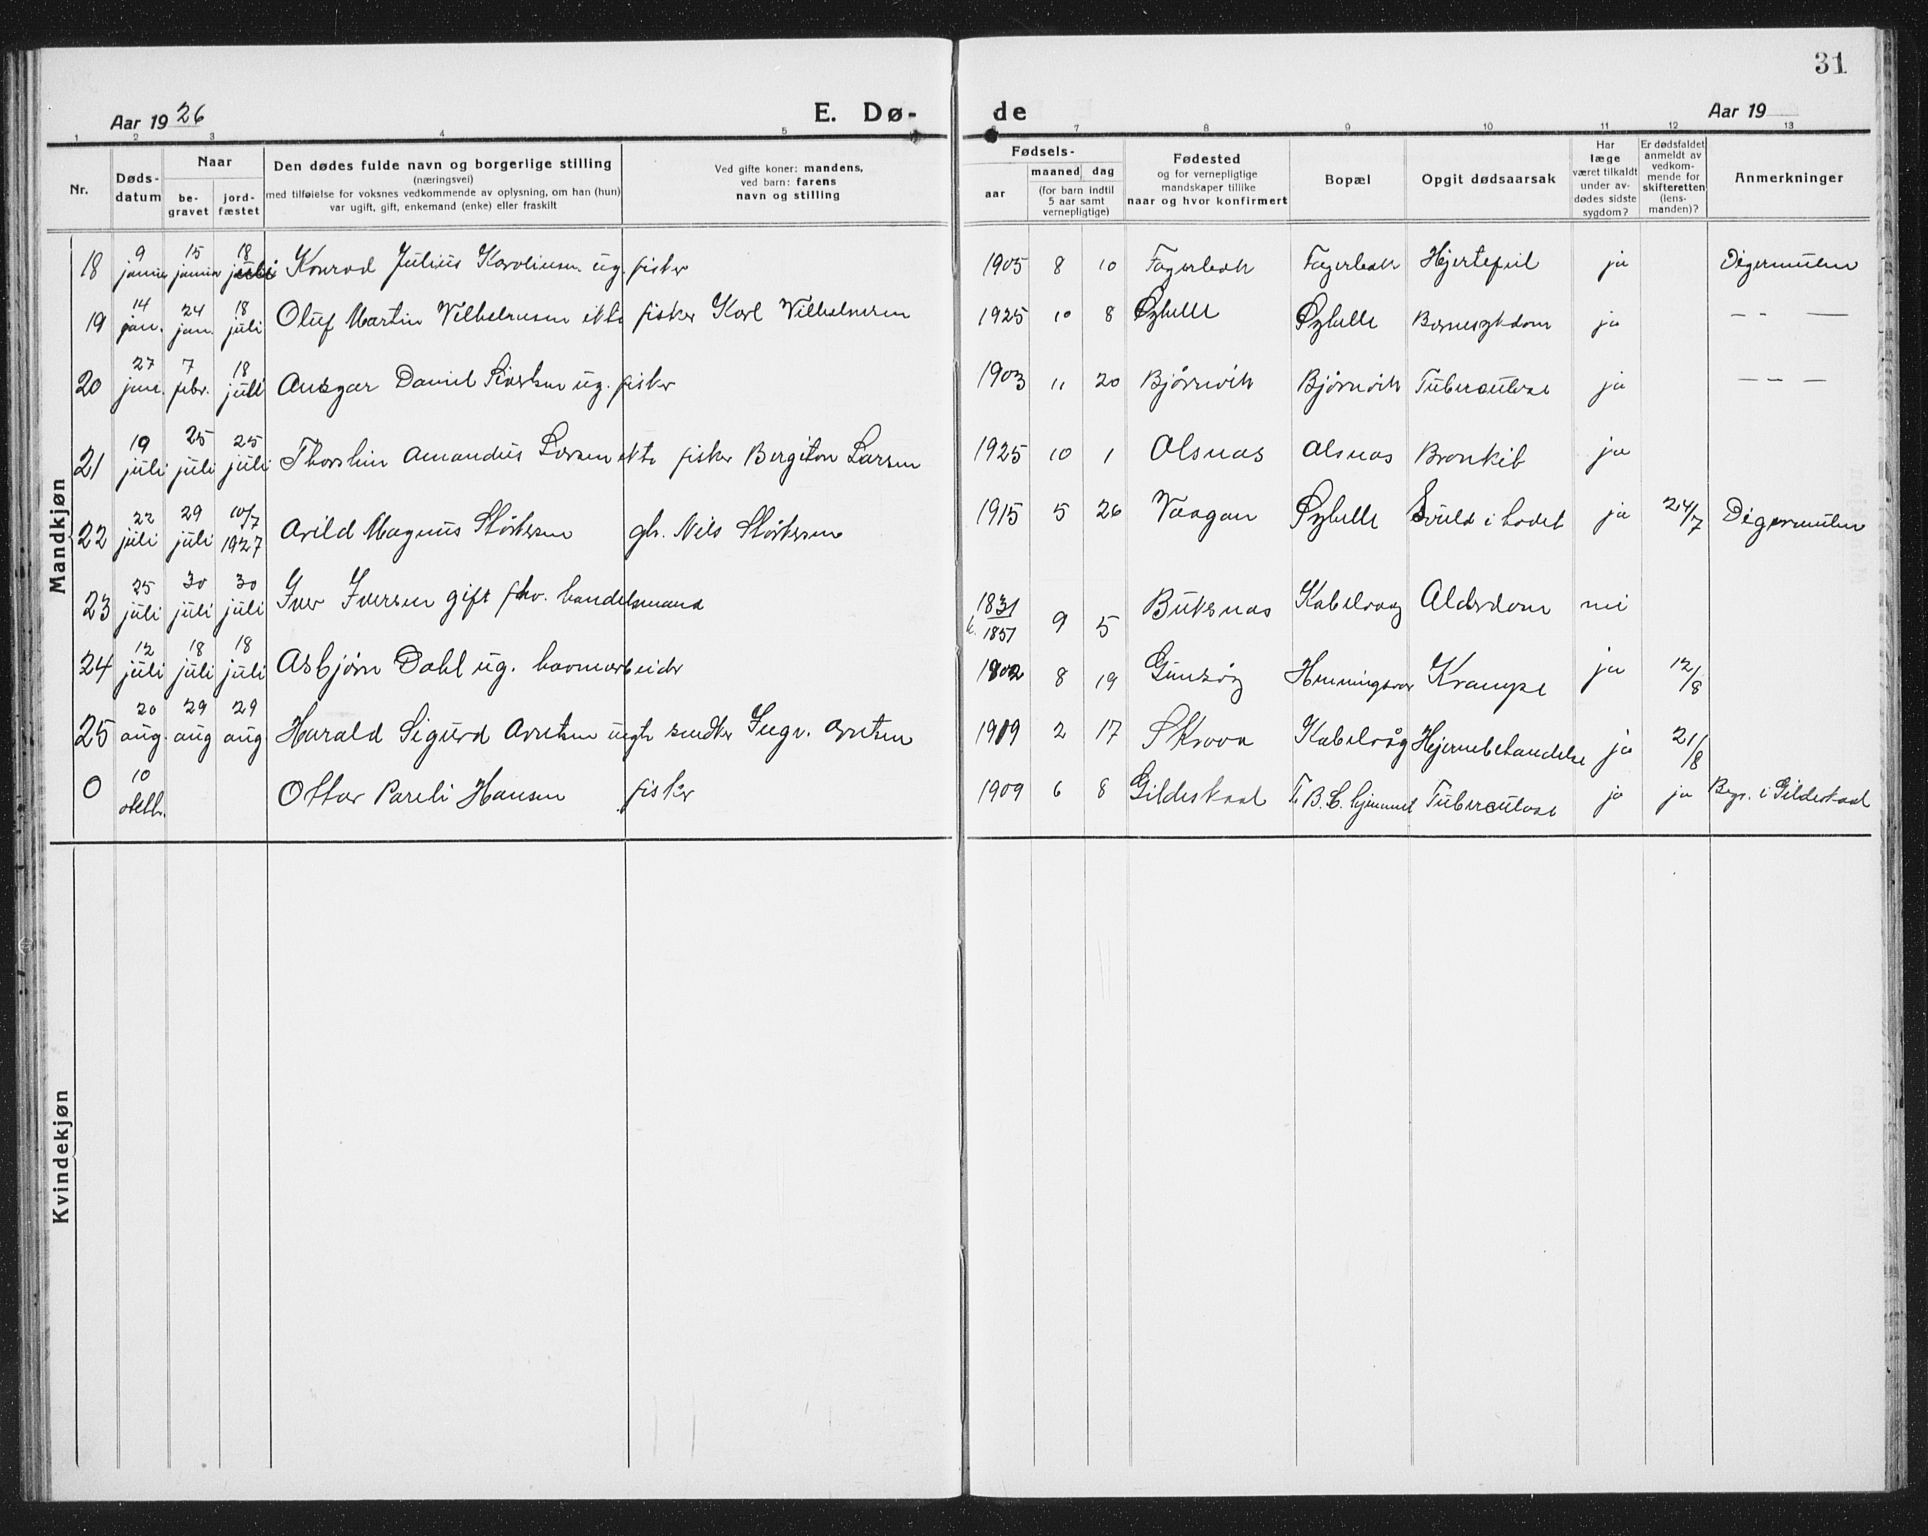 31
Aar 1926 E. Dø- de Aar 19
1 2 3 4 5 7 8 9 10 11 12 13
Nr.
Døds-
datum
Naar
be-
gravet
jord-
fæstet
Den dødes fulde navn og borgerlige stilling
(næringsvei)
med tilføielse for voksnes vedkommende av oplysning, om han (hun)
var ugift, gift, enkemand (enke) eller fraskilt
Ved gifte koner: mandens,
ved barn: farens
navn og stilling
Fødsels-
aar
maaned dag
(for barn indtil
5 aar samt
vernepligtige)
Fødested
og for vernepligtige
mandskaper tillike
naar og hvor konfirmert
Bopæl
Opgit dødsaarsak
Har
læge
været tilkaldt
under av-
dødes sidste
sygdom?
Er dødsfaldet
anmeldt av
vedkom-
mende for
skifteretten
(lens-
manden)?
Anmerkninger
Mandkjøn
18 9 januar 15 januar 18 juli Konrad Julius Karoliusen ug. fisker 1905 8 10 Fagerbakk Fagerbakk Hjertefeil ja Digermulen
19 14 jan. 24 jan. 18 juli Oluf Martin Vilhelmsen ekte fisker Karl Vilhelmsen 1925 10 8 Øyhelle Øyhelle Barnesykdom ja — — —
20 27 jan. 7 febr. 18 juli Ansgar Daniel Sivertsen ug. fisker 1903 11 20 Bjørnvik Bjørnvik Tuberculose ja — — —
21 19 juli 25 juli 25 juli Thorstein Amandus Larsen ekte fisker Bergiton Larsen 1925 10 1 Olsnas Olsnas Bronkit ja
22 22 juli 29 juli 10/7 1927 Arild Magnus Størkersen gb. Nils Størkersen 1915 5 26 Vaagan Øyhelle Svuld i hodet ja 24/7 Digermulen
23 25 juli 30 juli 30 juli Iver Iversen gift fhv. handelsmand 1831 k. 1851 9 5 Buksnas Kabelvaag Alderdom nei
24 12 juli 18 juli 18 juli Asbjørn Dahl ug. havnearbeider 1902 8 19 Gimsøy Henningsvær Krampe ja 12/8
25 20 aug. 29 aug 29 aug Harald Sigurd Arntsen uegte snedker Ingv. Arntsen 1919 2 17 Skrova Kabelvåg Hjernebetændelse ja 21/8
0 10 oktb. Ottar Pareli Hansen fisker 1909 6 8 Gildeskaal T. B. C. hjemmet Tuberculose ja ja Begr. i Gildeskaal
Kvindekjøn